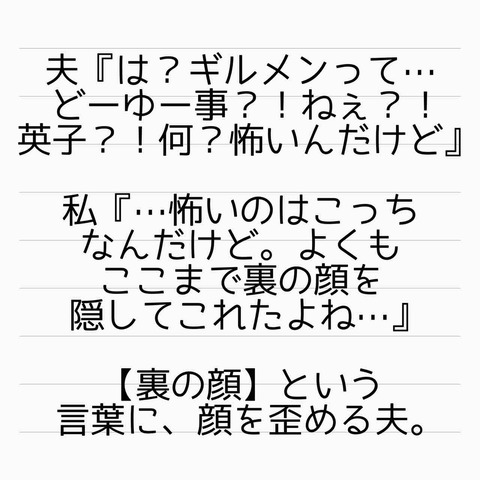 夫『は？ギルメンって…
どーゆー事？！ねぇ？！
英子？！何？怖いんだけど』
私『…怖いのはこっち
なんだけど。よくも
ここまで裏の顔を
隠してこれたよね…』
【裏の顔】という
言葉に、顔を歪める夫。